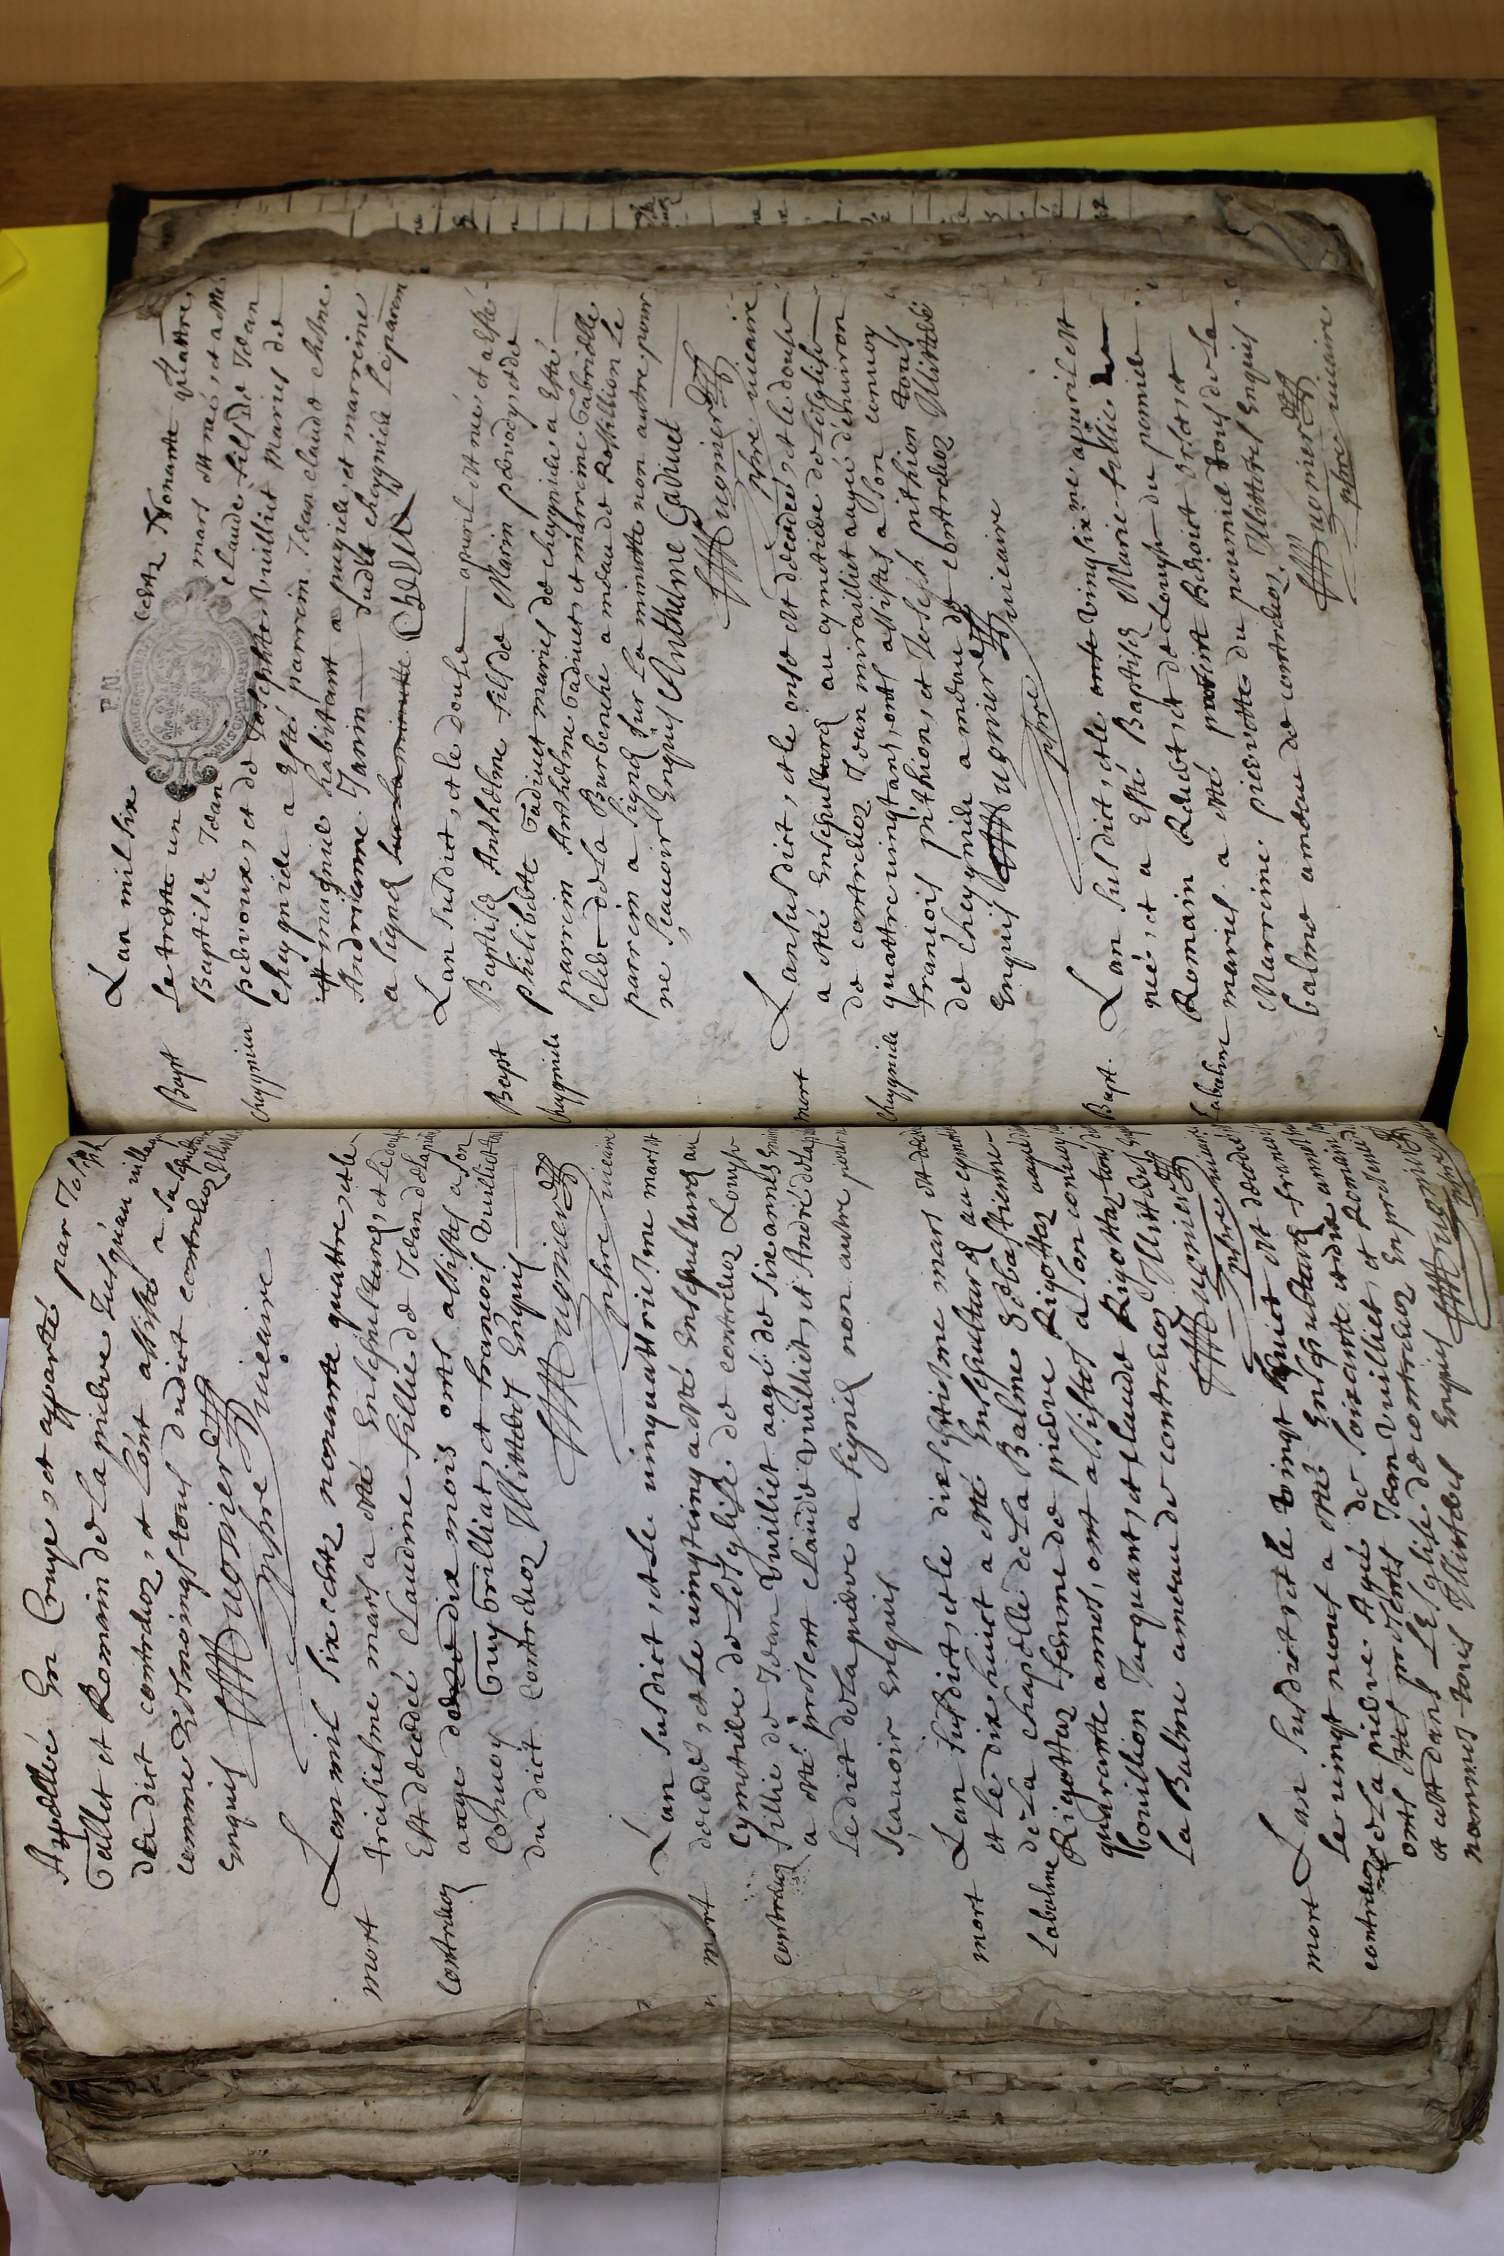 Appellée En Cruye, et apparté par Joseph
Gallet et Romain de La pierre Jusqu'au village
du dict contrdeoz, et L'ont assisté a sa sepulture
comme tesmoings tous dudict contrdeoz Illitterés
Enquis
Mugnier
ptbre vicaire
mort
Lan mil six centz nonante quattre, et le
treisiesme mars a esté Ensepulturée, et le douze
Est decedée Claudine fillie de Jean de la pierre
contrdeoz
aage de dix mois ont assistés a son
Convoy Guy Grilliat, et francois Vuilliet
du dict Contrdeoz Illitterés Enquis
Mugnier
ptbre vicaire
mort
Lan susdict, et Le vingquattriesme mars est
decedé, et Le vingtcinq a esté Ensepulturé au
Cymetiere de L'esglise de contrdeoz Louyse
contrdeoz
fillie de Jean Vuilliet aagé de six années
a esté present Claude Vuilliet, et André de la
Le dict de La pierre a signé non autre pour ne
Sçavoir Enquis
mort
Lan susdict, et le dixseptiesme mars est
et Le dix huict a esté Ensepulturée au cymetiere
de La chapelle de La Balme Sebastienne
Labalme
Rigottaz femme de pierre Rigottaz aagée
quarante annés, ont assistés a son convoy
Bouillion Jacquant, et Claude Rigottaz tous de
La Balme ameau de contrdeoz Illitterés
Mugnier
ptbre vicaire
mort
Lan susdict, et le vingt huict est decedé
Le vingt neuf a esté Ensepulturé francois
contrdeoz
de La pierre Agé de soixante et dix annés
ont estes presents Jean Vuilliet, et Romain
et cest dans L'Esglise de contrdeoz En presence
nommés tous Illitterés Enquis
Mugnier
ptbre
Lan mil six centz Nonante quattre,
Bapt
Le trente un mars est né, et a esté
Baptisé Jean Claude fils de Jean
cheygnieu
pervoux, et de Josephte Vuilliet Mariés de
cheygnieu a Esté parrein Jean claude chesne
magnié habitant a pugieu, et marreine
Andrianne Janin dudit cheygnieu Le parrein
a signé
Lan susdict, et Le douse
Bapt
apvril est né, et a esté
Baptisé Anthelme fils de Marin
cheygnieu
philiberte Gadinet mariés de cheygnieu a Esté
parrein Anthelme Gadinet, et marreine Gabrielle
Clere de La Burbenche a meau de Rossillion Le
parrein a signé sur La minutte non autre pour
ne Sçavoir Enquis Anthelme Gadinet
Mugnier
ptbre vicaire
mort
Lan susdict, et le onse est decedé, et le douse
a esté Ensepulturé au cymetiere de L'esglise
de contrdeoz Jean miraillet aagé d'environ
cheygnieu
quattrevingtans, ont assistés a son convoy
francois pithion, et Joseph pithion tous
de cheygnieu a meau de contrdeoz Illitterés
Enquis Mugnier
ptbre vicaire
Bapt
Lan susdict, et Le vingsixme apvril est
née, et a Esté Baptisée Marie fillie
Labalme
Romain Reubet, et de Louyse du pomier
mariés a esté parrein Benoist
Marreine pierrotte du poumier Illitterés Enquis
balme ameau de contrdeoz
Mugnier
ptbre vicaire